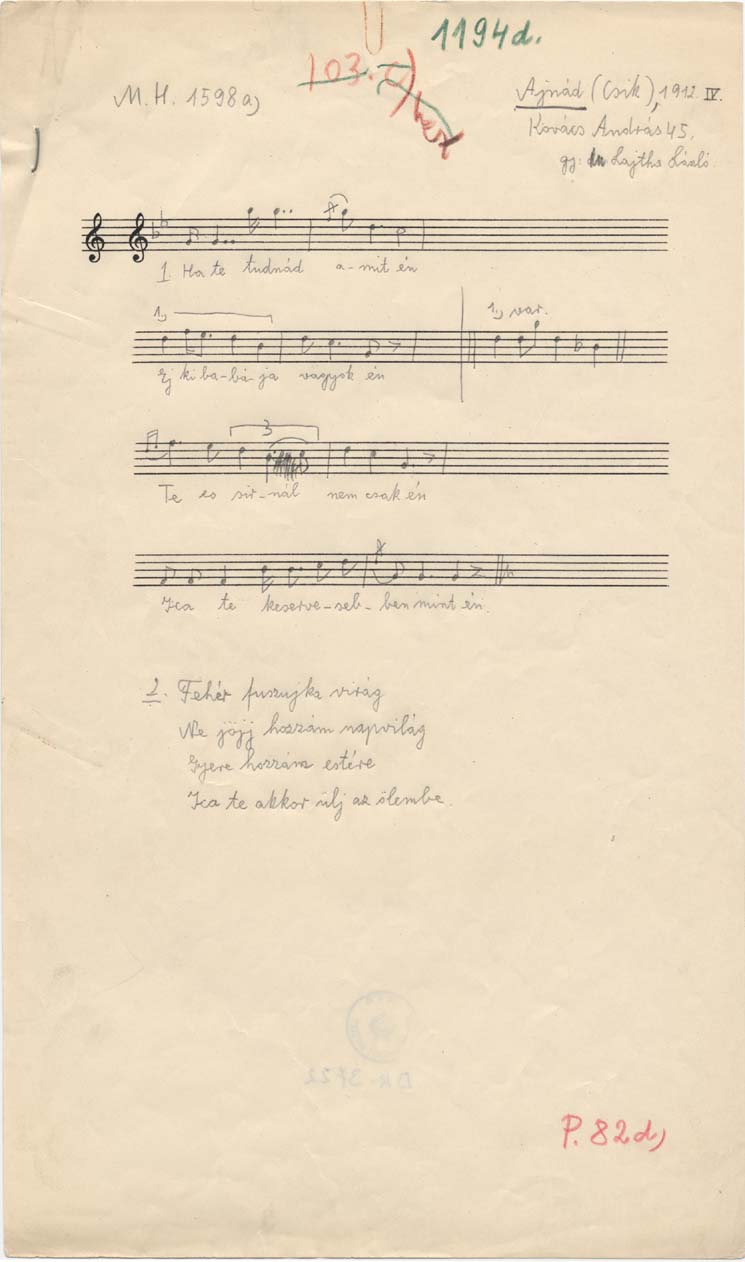 1194d.
103.
M. H. 1598a)
Ajnád (Csik), 1912. IV.
Kovács András 45.
gy: Lajtha László.
1. Ha te tudnád a-mit én
1,
1, var.
Ej ki ba-bá-ja vagyok én
3
Te es sir-nál nem csak én
Ica te keserve-seb-ben mint én.
2. Fehér fuszujka virág
Ne jöjj hozzám napvilág
Gyere hozzám estére
Ica te akkor ülj az ölembe.
P. 82d)